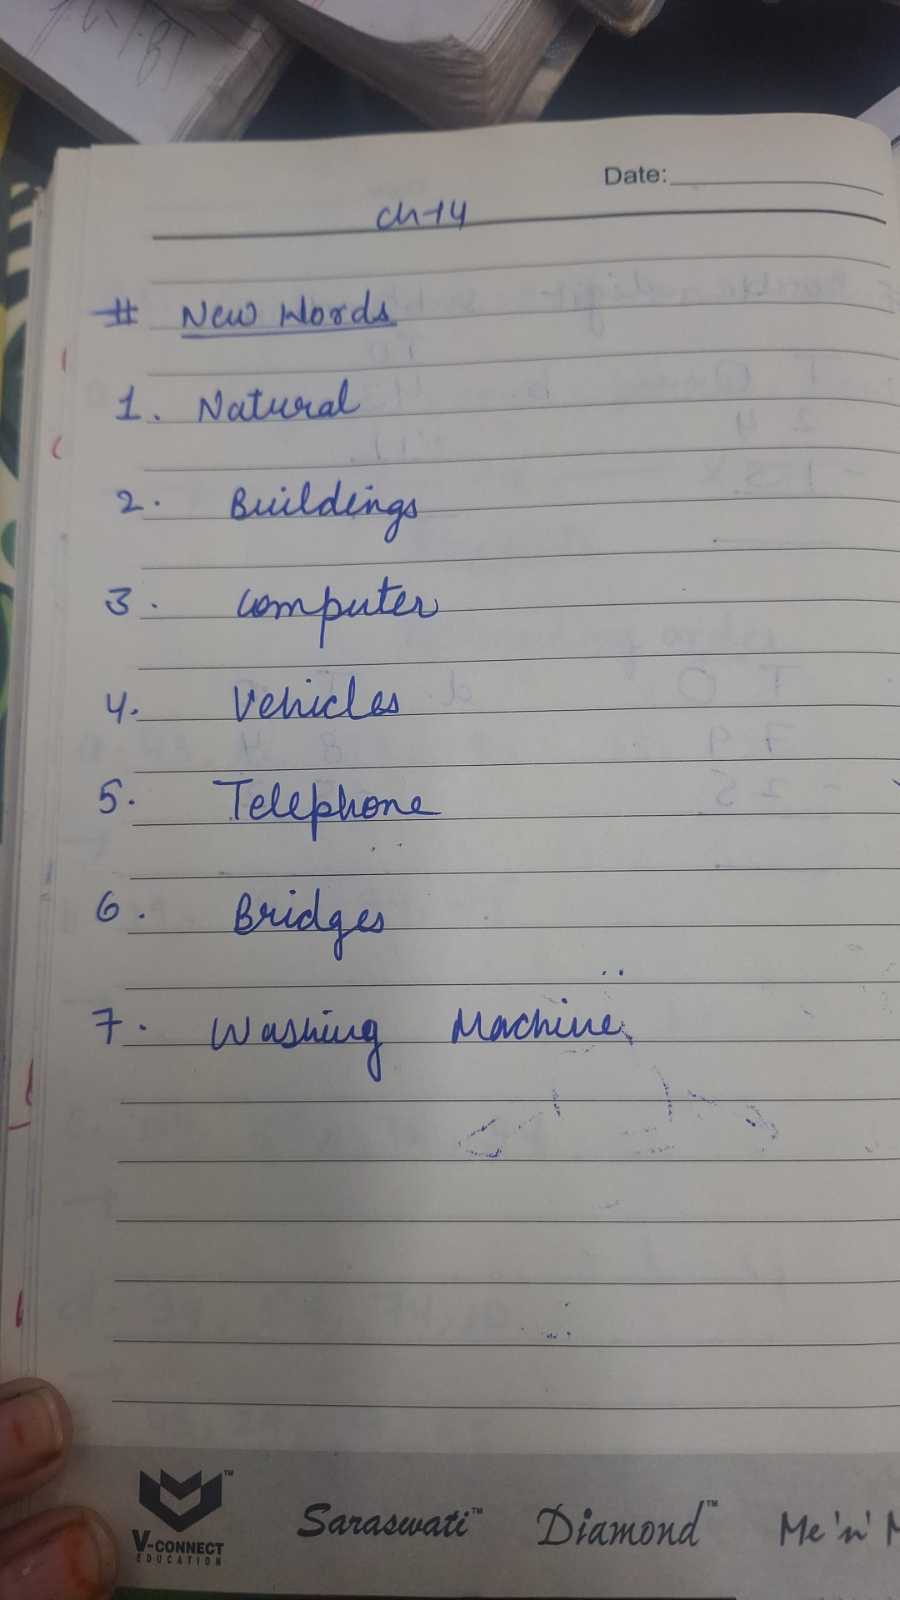 Date:
Ch-14
# New Words
1. Natural
2. Buildings
3. Computer
4. Vehicles
5. Telephone
6. Bridges
7. Washing Machine
V-CONNECT
EDUCATION
Saraswati™ Diamond™ Me 'n' M